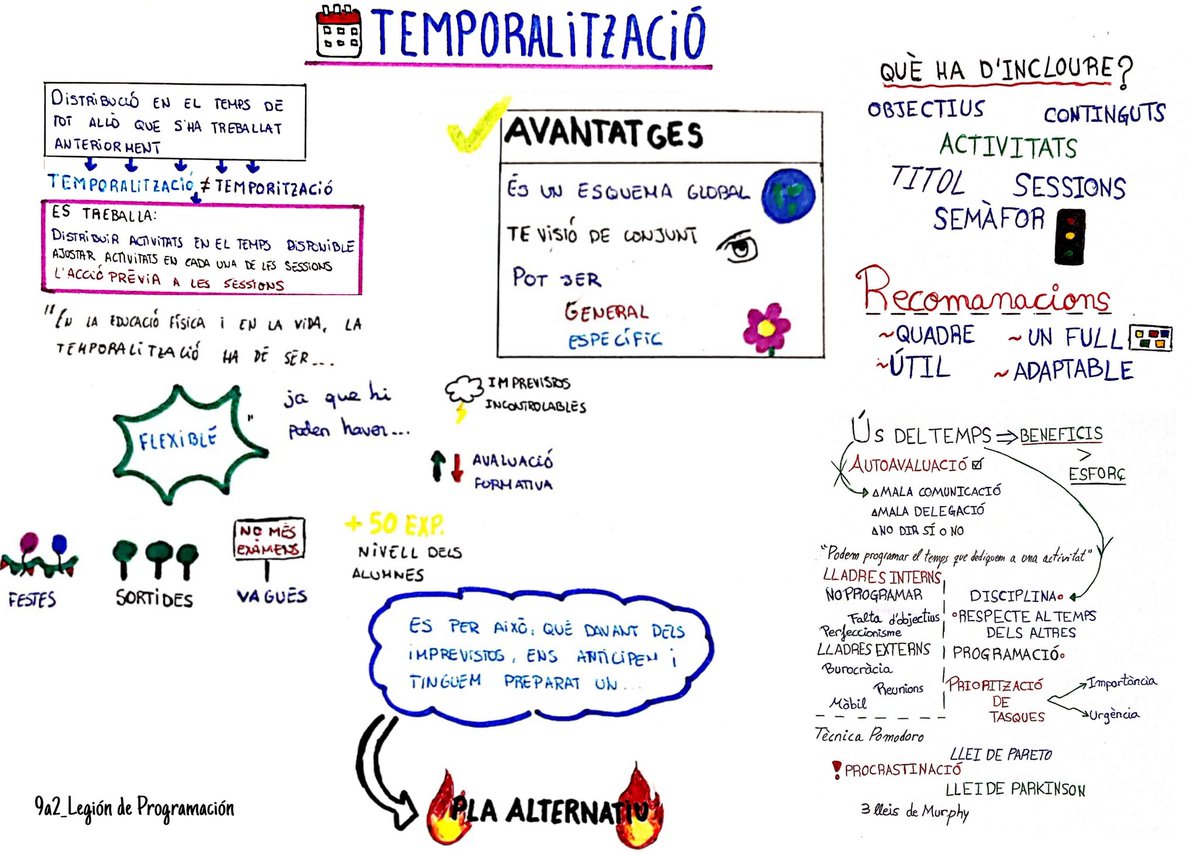 TEMPORALITZACIÓ
DISTRIBUCIÓ EN EL TEMPS DE
TOT ALLÒ QUE S'HA TREBALLAT
ANTERIORMENT
TEMPORALITZACIÓ ≠ TEMPORITZACIÓ
ES TREBALLA:
DISTRIBUIR ACTIVITATS EN EL TEMPS DISPONIBLE
AJUSTAR ACTIVITATS EN CADA UNA DE LES SESSIONS
L'ACCIÓ PRÈVIA A LES SESSIONS
"EN LA EDUCACIÓ FÍSICA I EN LA VIDA, LA
TEMPORALITZACIÓ HA DE SER...
FLEXIBLE"
ja que hi
poden haver...
IMPREVISTOS
INCONTROLABLES
AVALUACIÓ
FORMATIVA
FESTES
SORTIDES
NO MÉS
EXÀMENS
VAGUES
+50 EXP.
NIVELL DELS
ALUMNES
ES PER AIXÒ, QUÈ DAVANT DELS
IMPREVISTOS, ENS ANTICIPEM I
TINGUEM PREPARAT UN...
PLA ALTERNATIU
9a2_Legión de Programación
AVANTATGES
ÉS UN ESQUEMA GLOBAL
TE VISIÓ DE CONJUNT
POT SER
GENERAL
ESPECÍFIC
QUÈ HA D'INCLOURE?
OBJECTIUS
CONTINGUTS
ACTIVITATS
TITOL
SESSIONS
SEMÀFOR
Recomanacions
~QUADRE
~UN FULL
~ÚTIL
~ADAPTABLE
ÚS DEL TEMPS ⇒ BENEFICIS
>
ESFORÇ
AUTOAVALUACIÓ
MALA COMUNICACIÓ
MALA DELEGACIÓ
NO DIR SÍ O NO
"Podem programar el temps que dediquem a una activitat"
LLADRES INTERNS
NO PROGRAMAR
Falta d'objectius
Perfeccionisme
LLADRES EXTERNS
Burocràcia
Reunions
Mòbil
DISCIPLINA
RESPECTE AL TEMPS
DELS ALTRES
PROGRAMACIÓ
PRIORITZACIÓ
DE
TASQUES
Importància
Urgència
Tècnica Pomodoro
LLEI DE PARETO
! PROCRASTINACIÓ
LLEI DE PARKINSON
3 lleis de Murphy